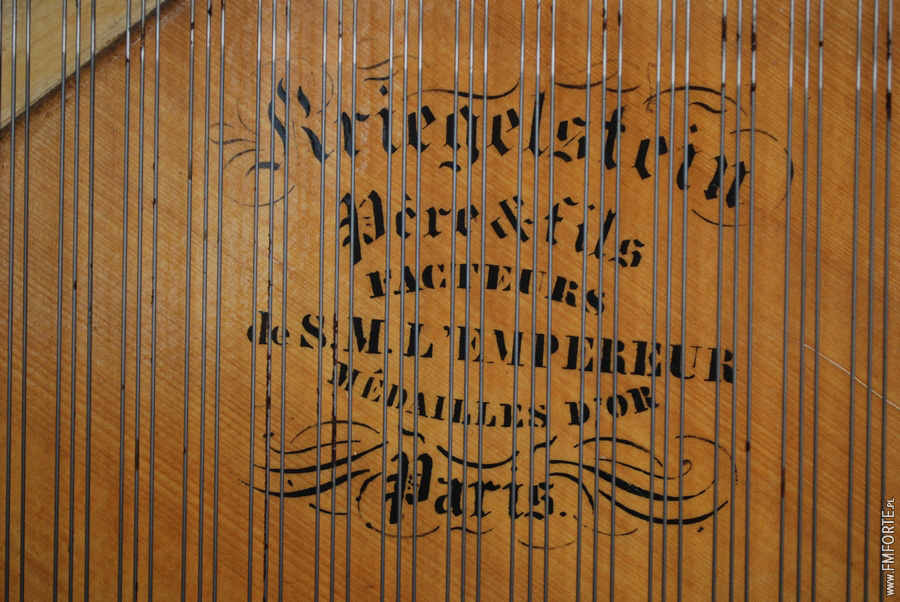 Kriegelstein
Père & fils
FACTEURS
de S. M. L'EMPEREUR
MÉDAILLES D'OR
Paris.
www.FMFORTE.PL